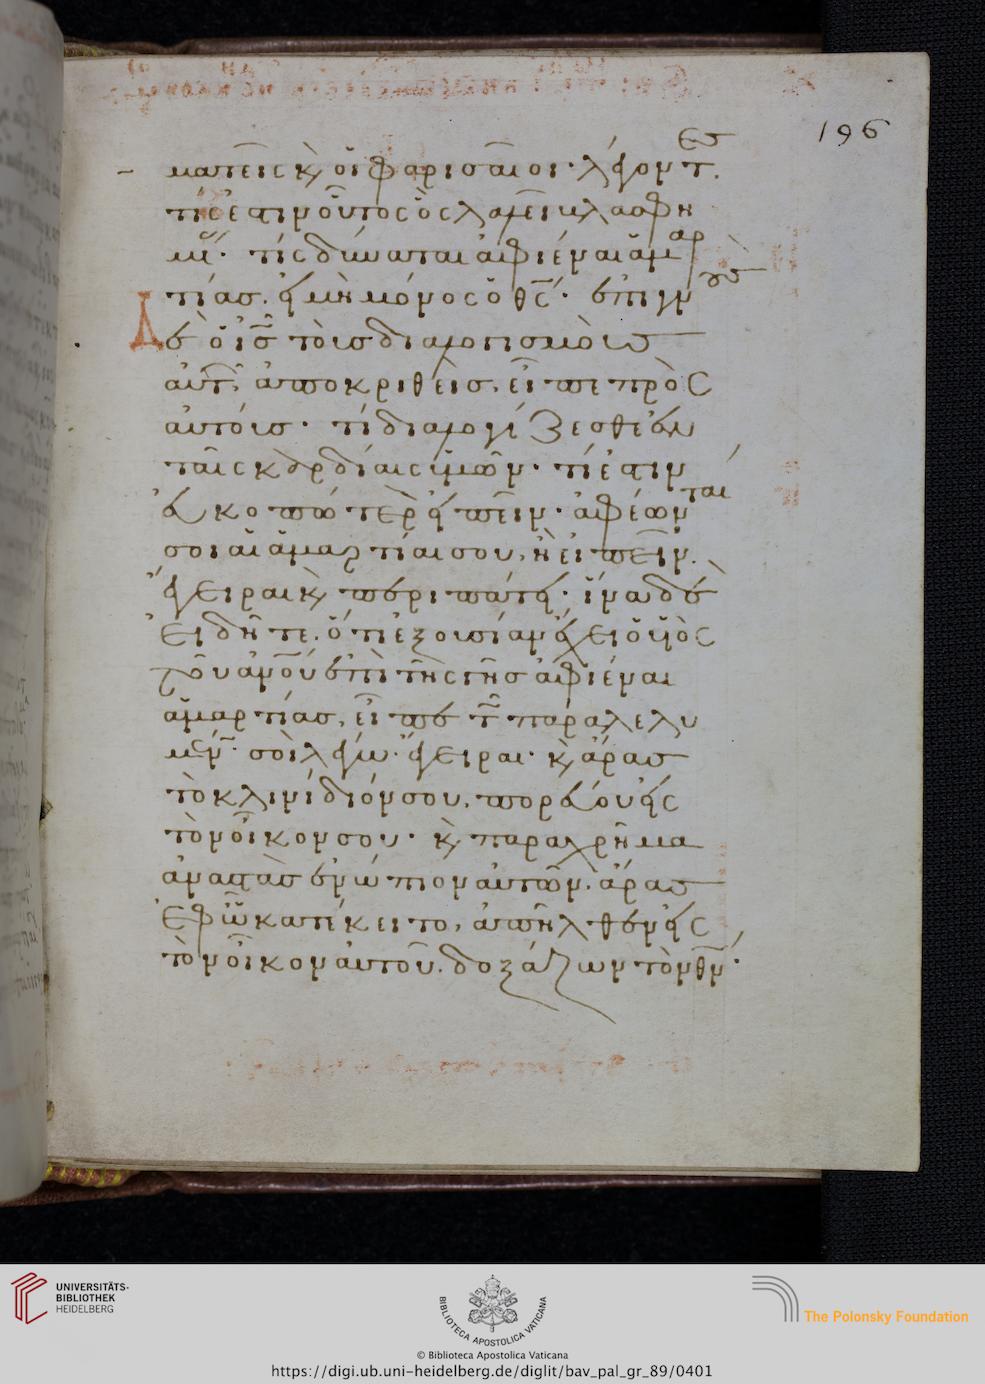 196
ματεῖς κ(αὶ) οἱ φαρισαῖοι· λέγοντες.
τίς ἐστιν οὗτος ὃς λαλεῖ βλασφη
μί(ας)· τίς δύναται ἀφιέναι ἁμαρ
τίας. εἰ μὴ μόνος ὁ θς· ἐπιγνοὺς
δὲ ὁ ις τοὺς διαλογισμοὺς
αὐτῶν, ἀποκριθεὶς, εἶπε πρὸς
αὐτούς· τί διαλογίζεσθε ἐν
ταῖς καρδίαις ὑμῶν· τί ἐστιν
εὐκοπώτερον εἰπεῖν· ἀφέωνται
σοι αἱ ἁμαρτίαι σου, ἢ εἰπεῖν.
ἔγειραι κ(αὶ) περιπάτει· ἵνα δὲ
εἰδῆτε. ὅτι ἐξουσίαν ἔχει ὁ υἱὸς
τοῦ ανου ἐπὶ τῆς γῆς ἀφιέναι
ἁμαρτίας, εἶπε τῷ παραλελυ
μένῳ· σοὶ λέγω· ἔγειραι· κ(αὶ) ἄρας
τὸ κλινίδιόν σου, πορεύου εἰς
τὸν οἶκον σου· κ(αὶ) παραχρῆμα
ἀναστὰς ἐνώπιον αὐτῶν. ἄρας
ἐφ ᾧ κατέκειτο, ἀπῆλθεν εἰς
τὸν οἶκον αὐτοῦ. δοξάζων τὸν θν·
UNIVERSITÄTS-
BIBLIOTHEK
HEIDELBERG
BIBLIOTECA APOSTOLICA VATICANA
© Biblioteca Apostolica Vaticana
The Polonsky Foundation
https://digi.ub.uni-heidelberg.de/diglit/bav_pal_gr_89/0401